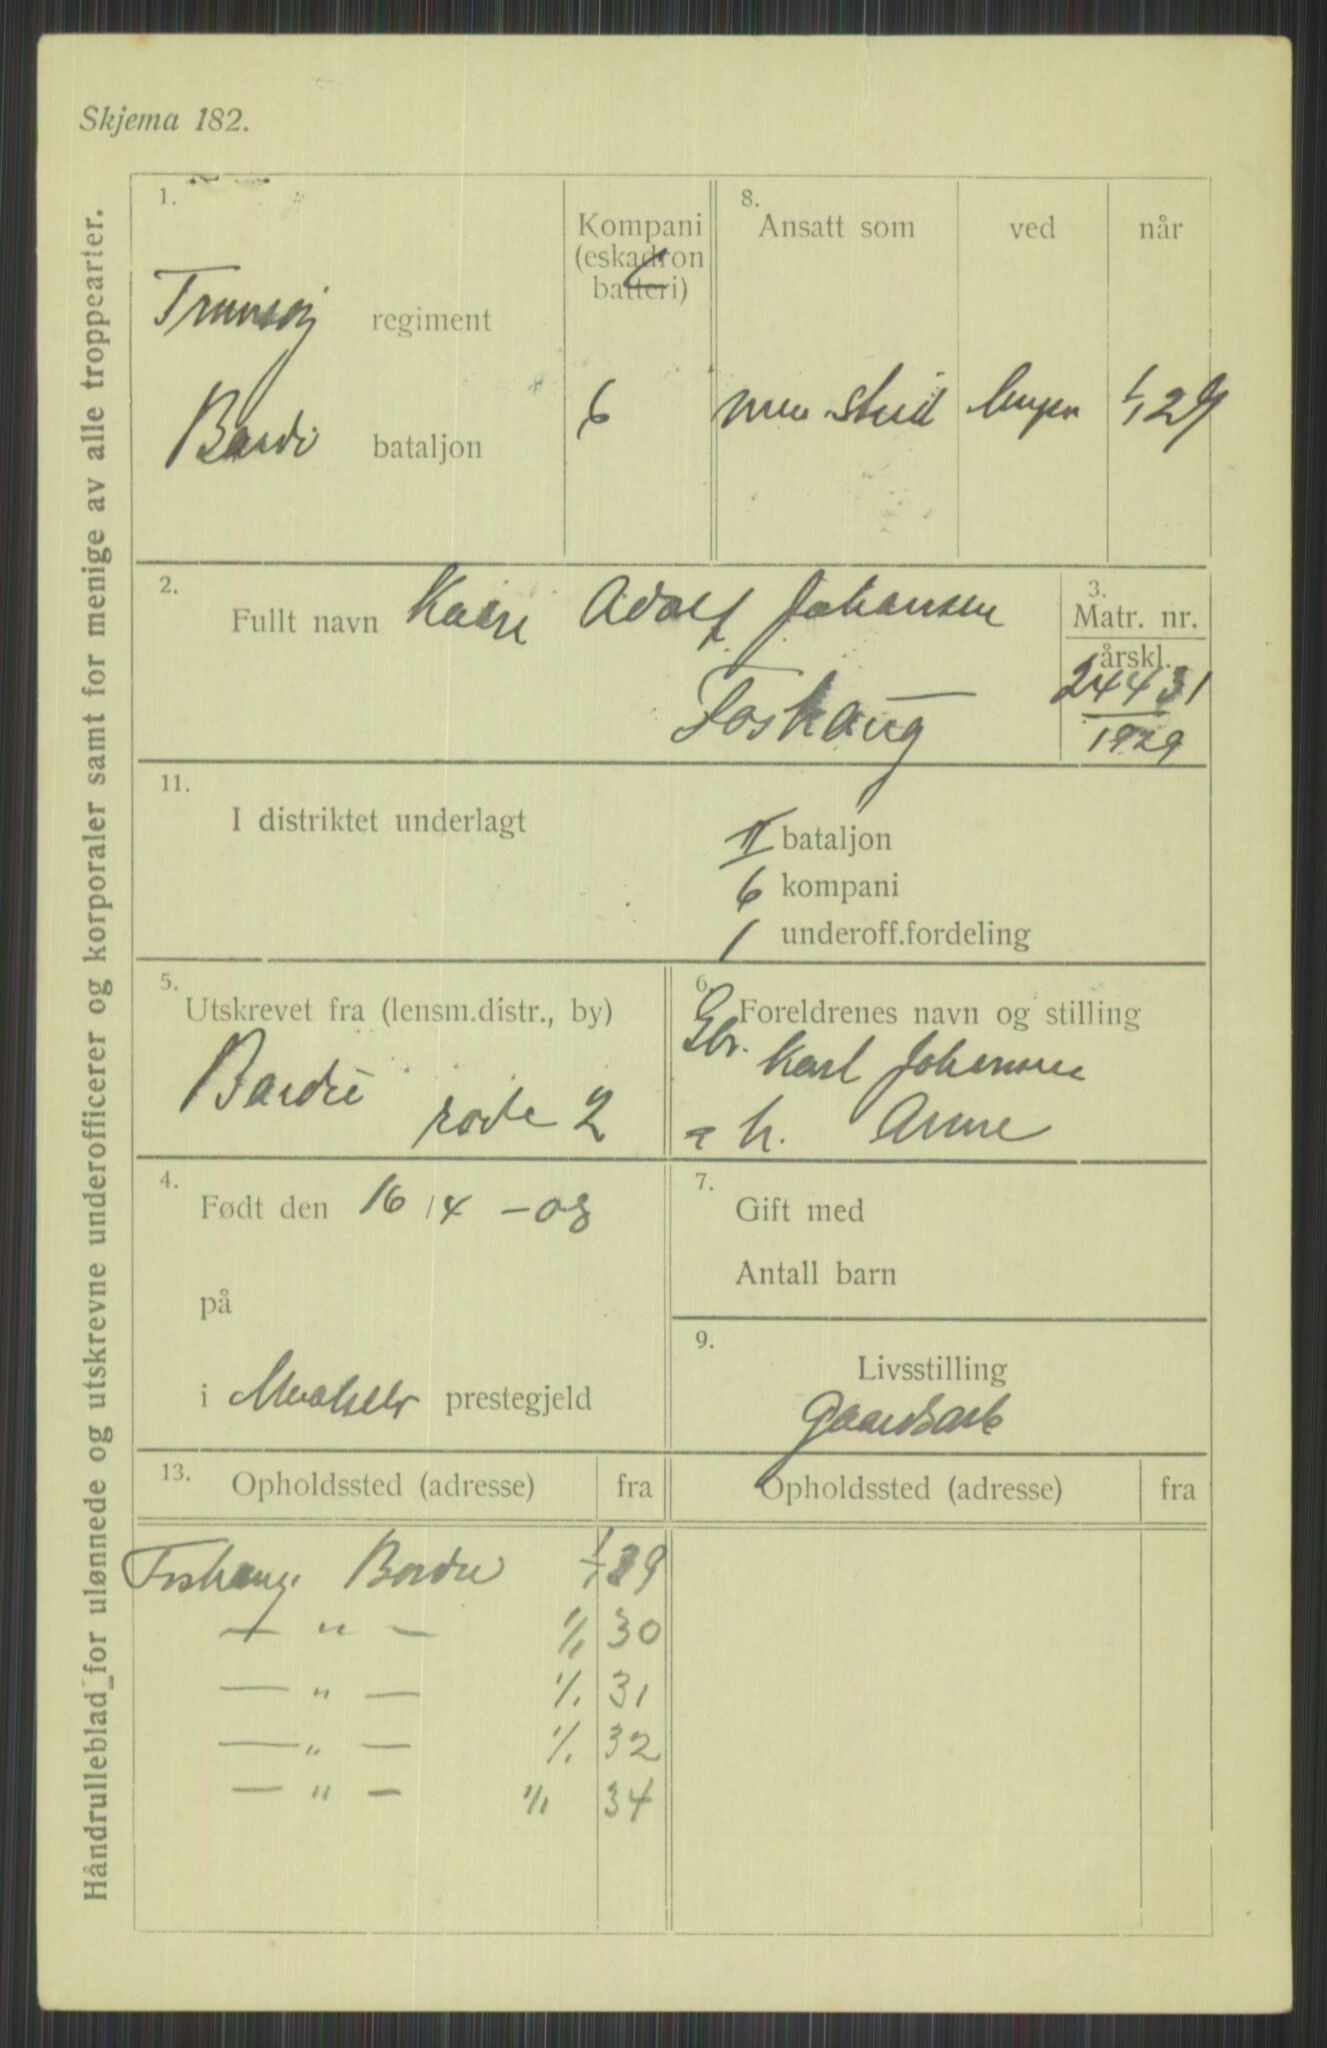 Skjema 182.
Håndrulleblad for ulønnede og utskrevne underofficerer og korporaler samt for menige av alle troppearter.
1.
Kompani
(eskadron
batteri)
8.
Ansatt som
ved
når
regiment
Bardu bataljon
6
29
2.
Fullt navn Kaare Adolf Johansen
Foshaug
3.
Matr. nr.
årskl.
24431
1929
11.
I distriktet underlagt
II bataljon
6 kompani
1 underoff.fordeling
5.
Utskrevet fra (lensm.distr., by)
Bardu rode 2
6.
Foreldrenes navn og stilling
Gbr. Karl Johansen
h. Anne
4.
Født den 16/4 -08
på
i prestegjeld
7.
Gift med
Antall barn
9.
Livsstilling
Gaardsarb
13.
Opholdssted (adresse)
fra
Opholdssted (adresse)
fra
Foshaug. Bardu 1/1 29
— " — 1/1 30
— " — 1/1 31
— " — 1/1 32
— " — 1/1 34